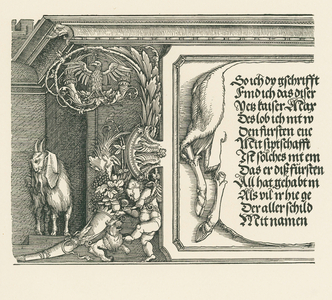 So ich dy gschrifft
Find ich das diser
Vetz kaiser Max
Des lob ich mit w
Den fursten eue
Mit siptschafft
Ist solches mit em
Das er diß fürsten
All hat gehabt in
Als vil ir hie ge
Der aller schild
Mitt namen